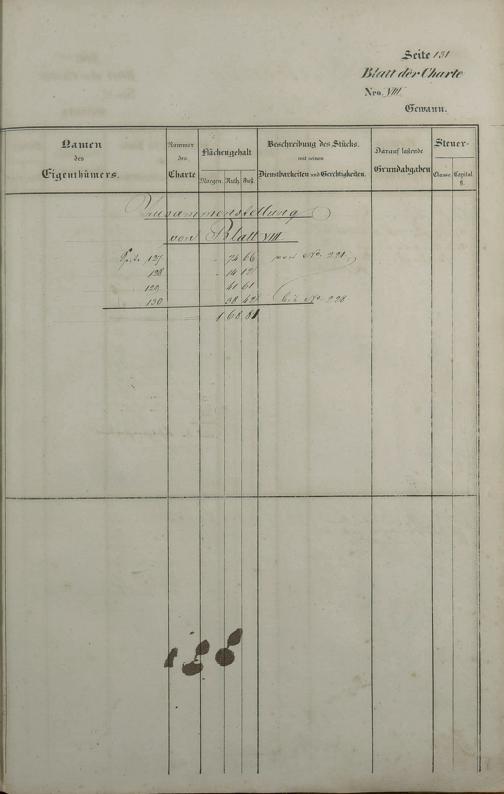 Seite 131
Blatt der Charte
Nro. VIII
Gewann.
Namen des Eigenthümers.
Nummer des Charte
Flächengehalt
Morgen. Ruth. Fuß.
Beschreibung des Stücks. mit seinen Dienstbarkeiten und Gerechtigkeiten.
Darauf lastende Grundabgaben
Steuer-
Classe. Capital. fl.
Zusammenstellung
von Blatt VIII
Seite 127 - 74 66 von No. 221.
128 - 14 12
129 41 61
130 38 42 bis No. 228
1 68 81